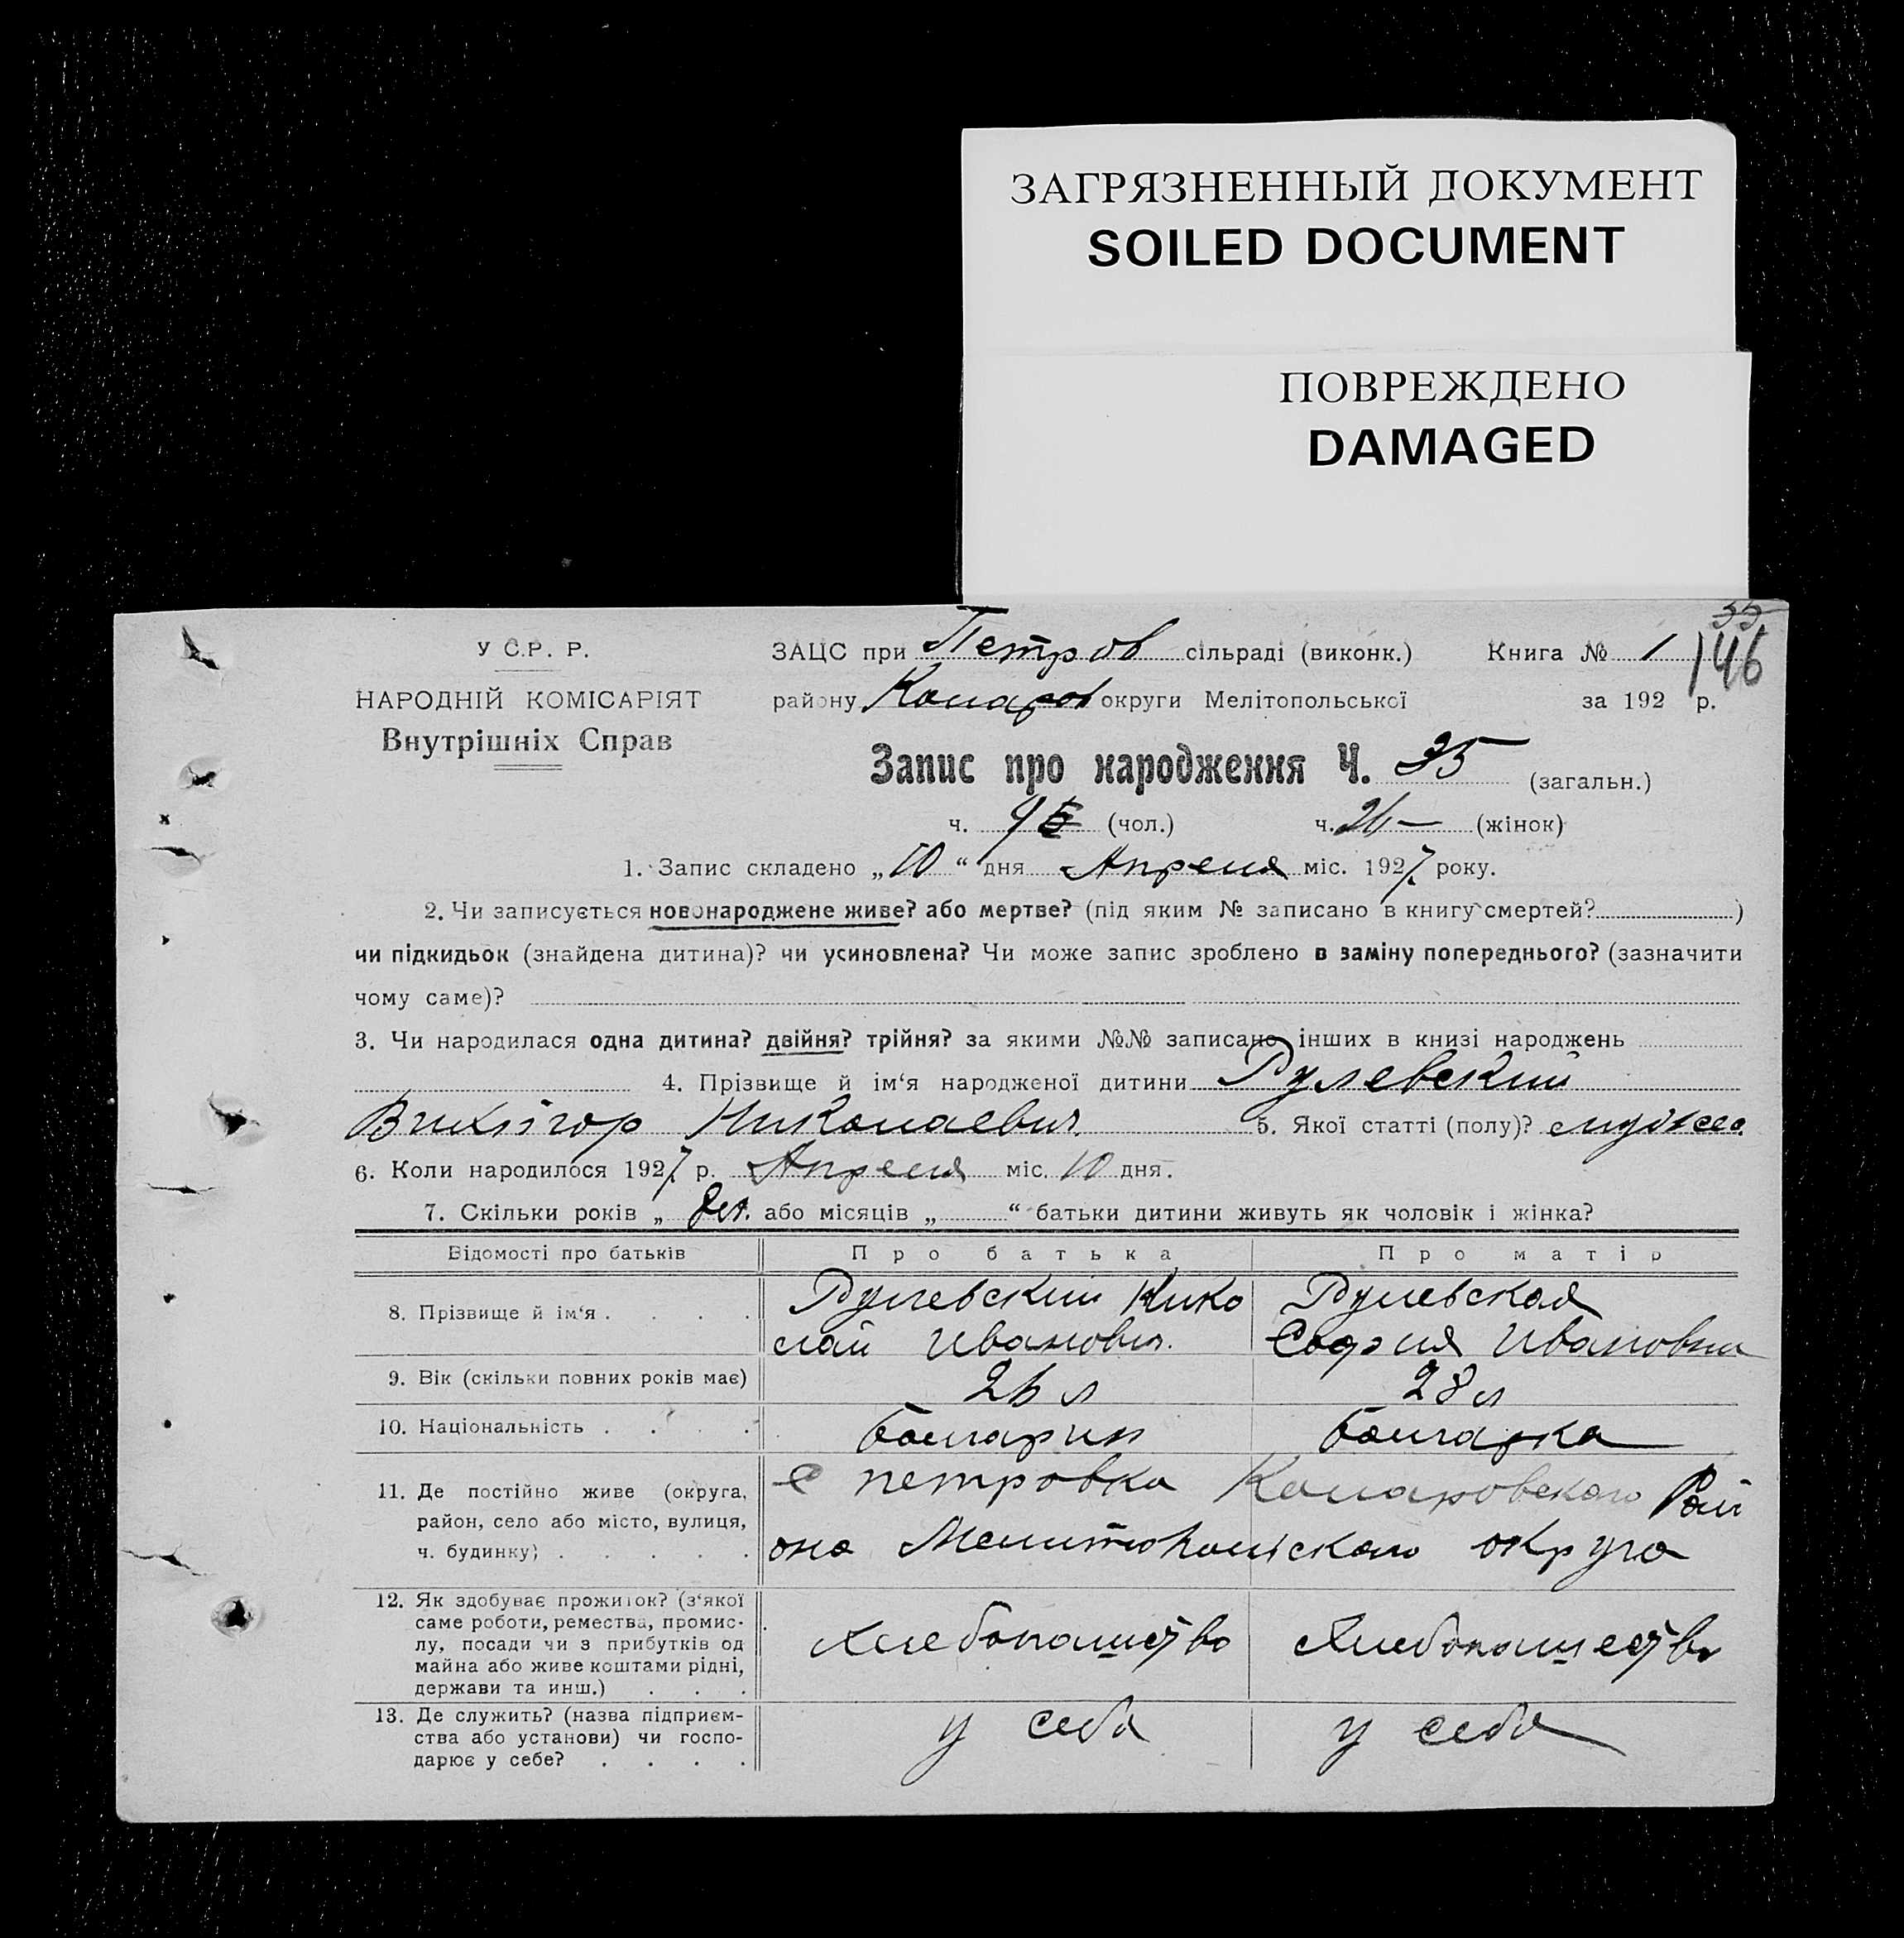 ЗАГРЯЗНЕННЫЙ ДОКУМЕНТ
SOILED DOCUMENT
ПОВРЕЖДЕНО
DAMAGED
35
146
У С.Р. Р.
НАРОДНІЙ КОМІСАРІЯТ
Внутрішніх Справ
ЗАЦС при Петров сільраді (виконк.) Книга № 1
району округи Мелітопольської за 192 р.
Запис про народження Ч. 35 (загальн.)
ч. (чол.) ч. (жінок)
1. Запис складено „10“ дня Апреля міс. 1927 року.
2. Чи записується новонароджене живе? або мертве? (під яким № записано в книгу смертей? )
чи підкидьок (знайдена дитина)? чи усиновлена? Чи може запис зроблено в заміну попереднього? (зазначити
чому саме)?
3. Чи народилася одна дитина? двійня? трійня? за якими №№ записано інших в книзі народжень
4. Прізвище й ім‘я народженої дитини Рулевский
Николаевич 5. Якої статті (полу)?
6. Коли народилося 1927 р. Апреля міс. 10 дня.
7. Скільки років „ або місяців „ “ батьки дитини живуть як чоловік і жінка?
Відомості про батьків Про батька Про матір
8. Прізвище й ім‘я . . . . Рулевский Нико Рулевская
лай Иванович. София Ивановна
9. Вік (скільки повних років має) 26 л 28 л
10. Національність . . . . болгарин болгарка
11. Де постійно живе (округа, район, село або місто, вулиця, ч. будинку) . . . . .
с петровка Коларовского Рай
она Мелитопольского округа
12. Як здобуває прожиток? (з‘якої
саме роботи, ремества, промис-
лу, посади чи з прибутків од
майна або живе коштами рідні,
держави та инш.) . . .
хлебопашество хлебопашество
13. Де служить? (назва підприєм-
ства або установи) чи госпо-
дарює у себе? . . . .
у себя у себя